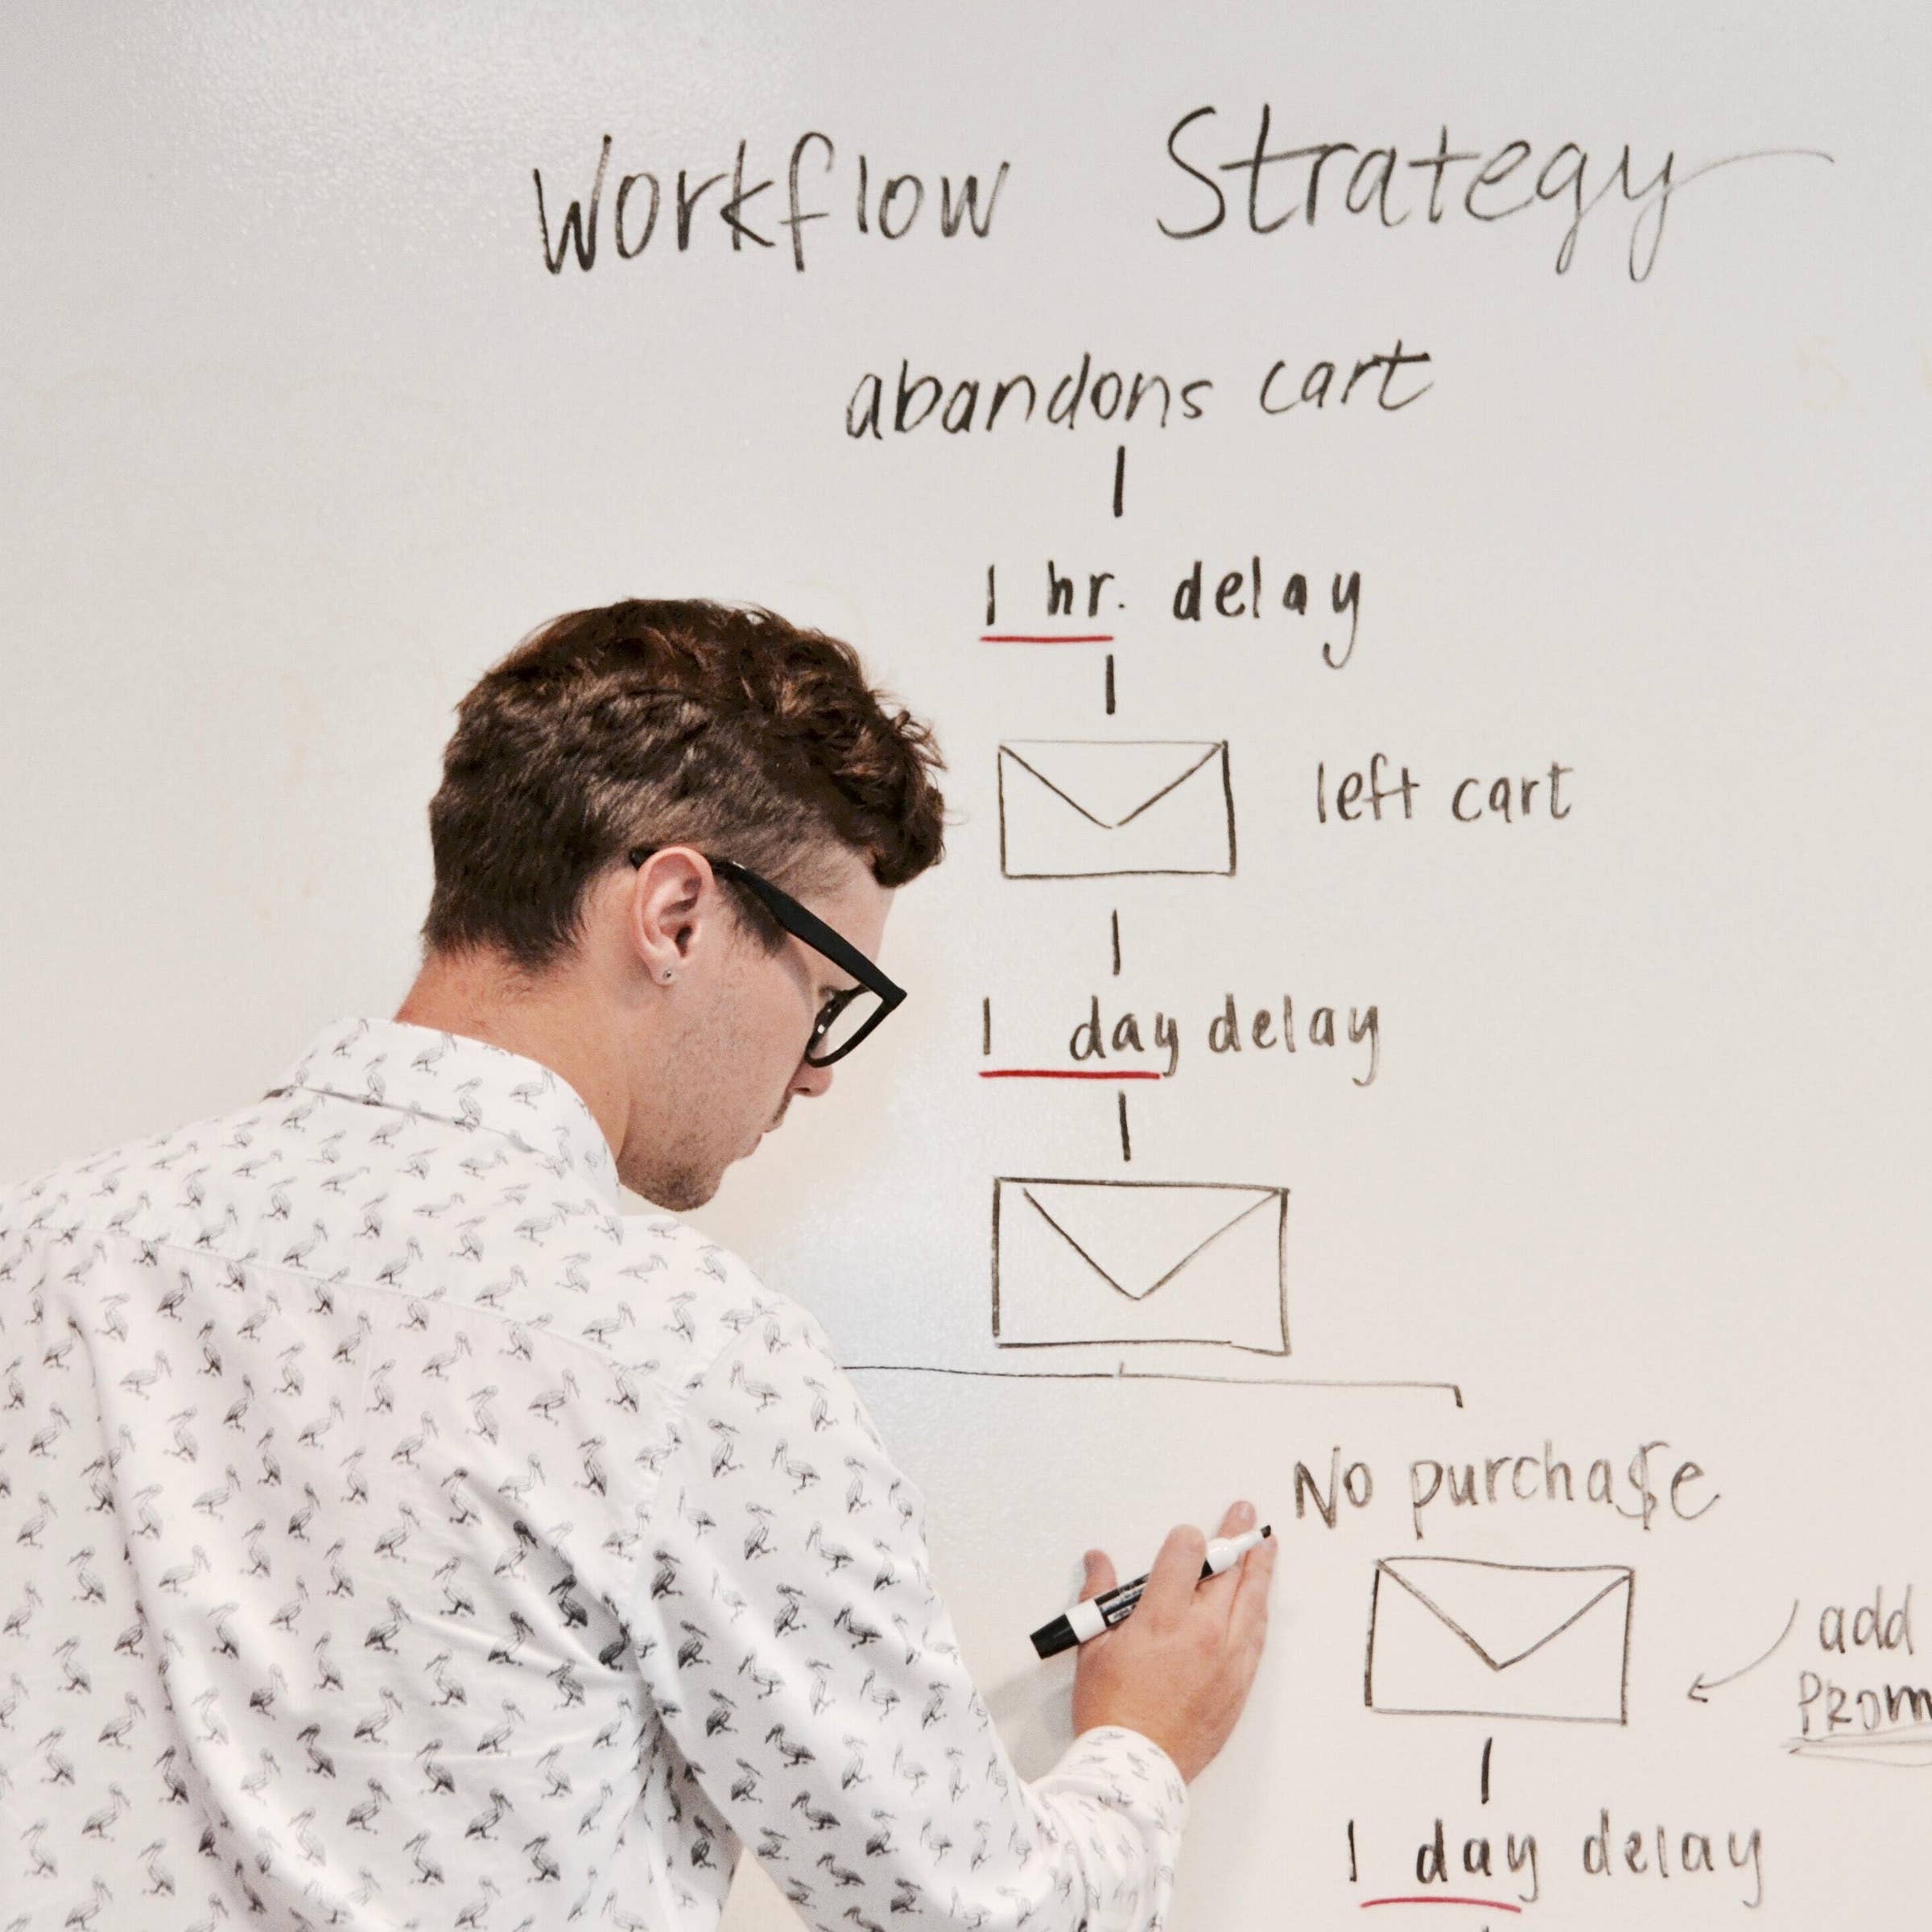 Workflow Strategy
abandons cart
1 hr. delay
left cart
1 day delay
No purcha$e
add
PROM
1 day delay